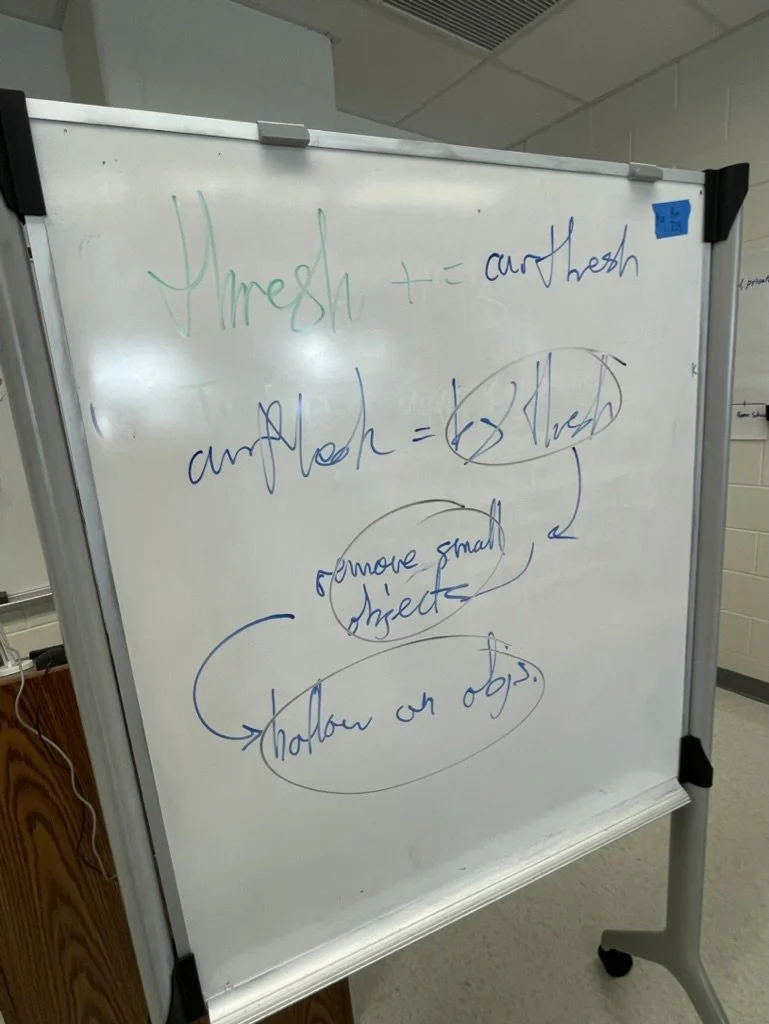 thresh += currthresh
= thresh
remove small
objects
hollow on objs.